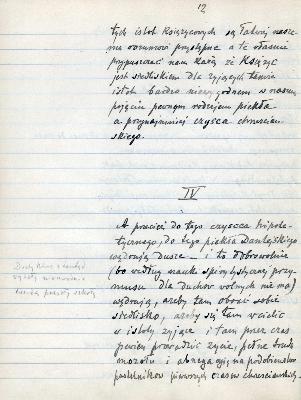 12
tych istot księżycowych są łatwiej nasze-
mu rozumowi przystępne a te własnie
przypuszczać nam każą że Księżyc
jest siedliskiem dla żyjących tamże
istot bardzo niewygodnem w naszem
pojęciu pewnym rodzajem piekła
a przynajmniej czysca chrześcian-
skiego.
IV
A przecież do tego czyscca hipote-
tycznego, do tego piekła Dantejskiego
wędrują dusze — i to dobrowolnie
(bo według nauk spirytystycznej przy-
musu dla duchów wolnych nie ma)
wędrują, ażeby tam obrać sobie
siedlisko, ażeby się tam wcielić
w istoty żyjące i tam przez czas
pewien prowadzić życie, pełne trudu
mozołu i abnegacyi, na podobieństwo
pustelników pierwszych czasów chrześcianskich.